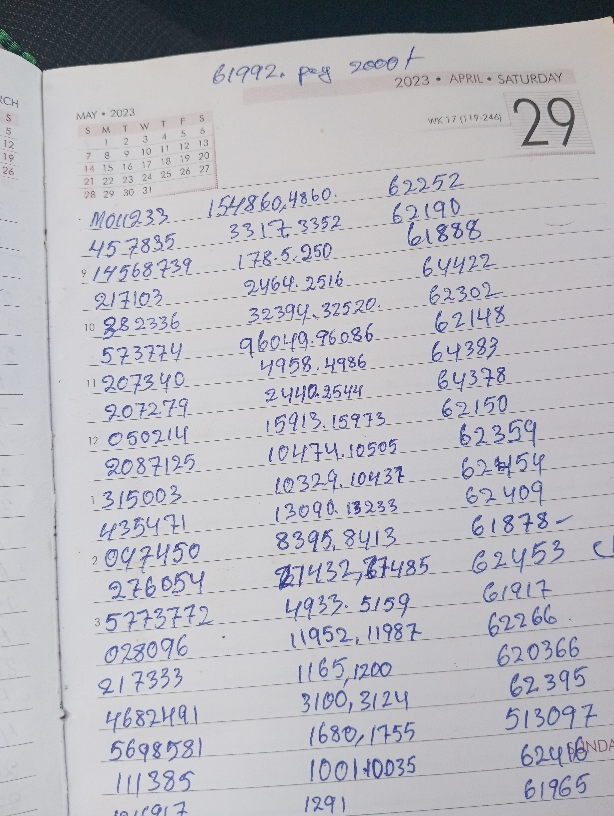 61992. pay 2000/
2023 • APRIL • SATURDAY
MAY • 2023
WK 17 (119-246)
29
S M T W T F S
1 2 3 4 5 6
7 8 9 10 11 12 13
14 15 16 17 18 19 20
21 22 23 24 25 26 27
28 29 30 31
RCH
S
5
12
19
26
154860,4860. 62252
457835 3317.3352 62190
9 14568739 178.5.250 61888
217103 2464.2516 64422
10 282336 32394.32520. 62302
573774 96049.96086 62148
11 207340 4958.4986 64383
207279 2440.2544 64378
12 050214 15913.15973 62150
2087125 10474.10505 62359
1 315003 10329.10437 62454
435471 13090.13233 62409
2 047450 8395,8413 61878 -
276054 67432,67485 62453
3 5773772 4933.5159 61917
028096 11952,11987 62266
217333 1165,1200 620366
4682491 3100,3124 62395
5698581 1680,1755 513097
111385 10011.10035
1291 61965